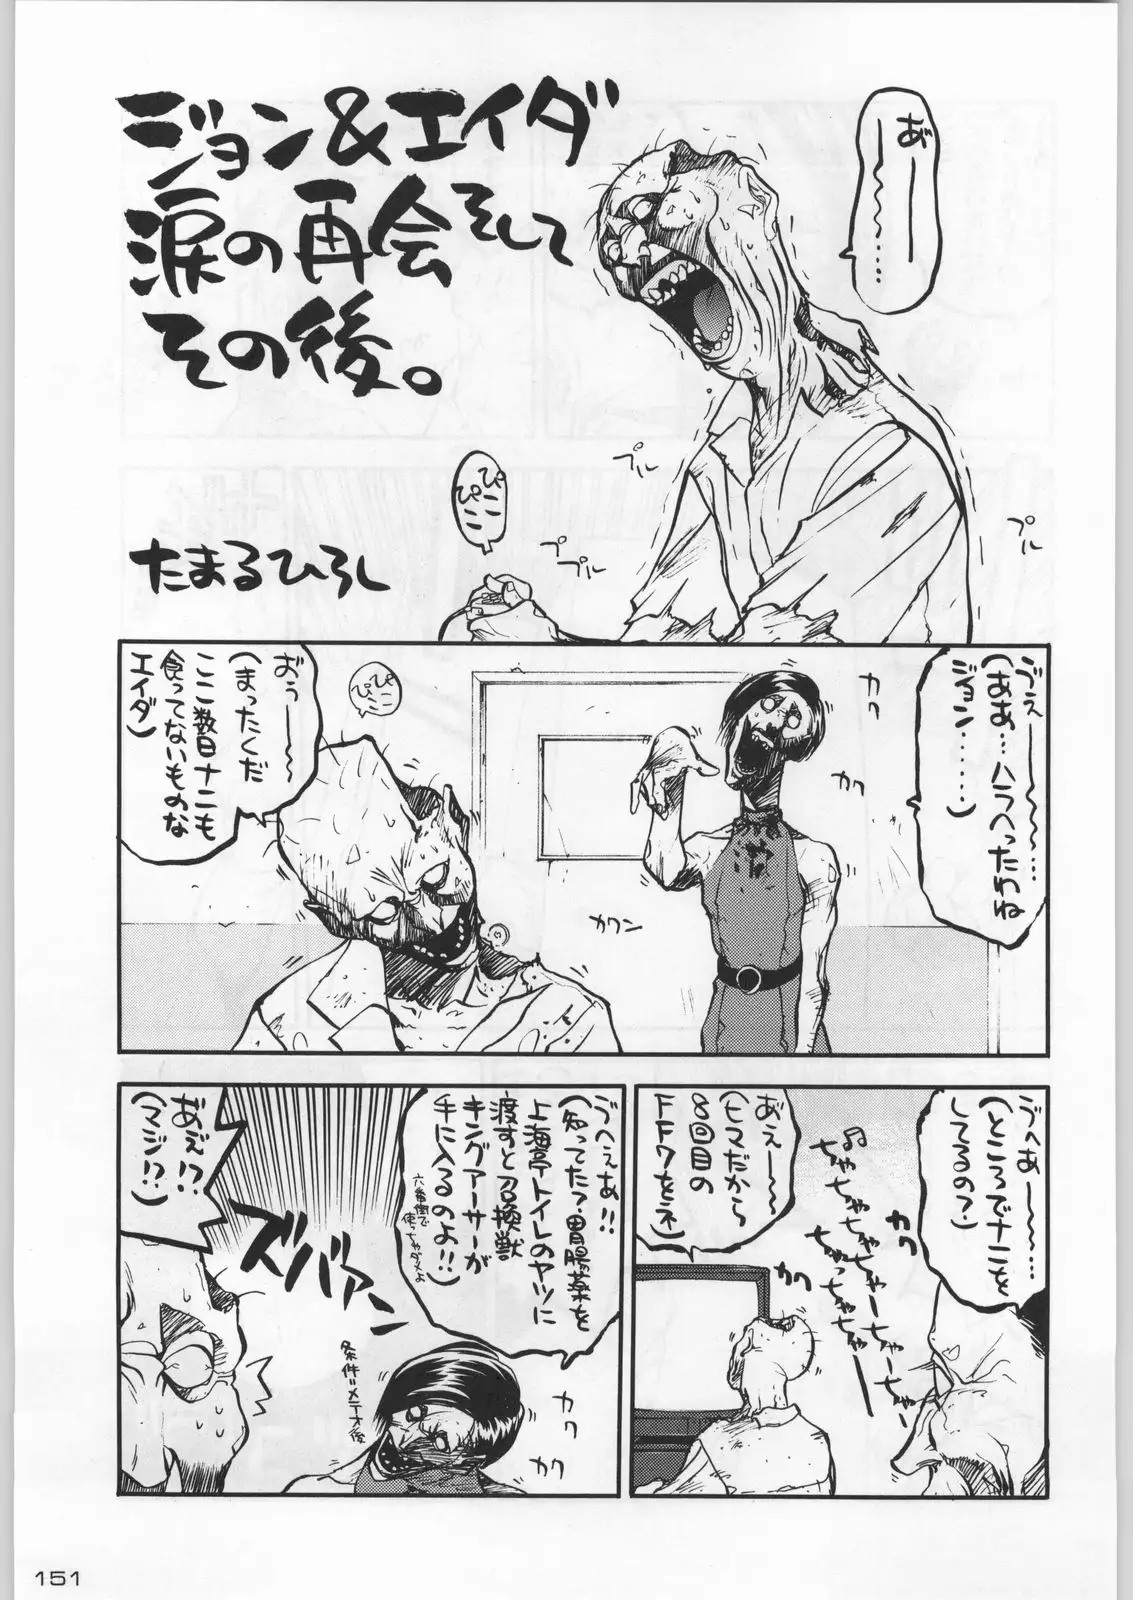 ジョン&エイダ
涙の再会そして
その後。
たまるひろし
あ゛ーー〜〜〜……
ぴこ
ぴこ
プル
プ
プル
プル
ゔえ゛ーー〜〜…
(ああ…ハラへったわね
ジョン………)
カク
カク
カクン
ぴこ
ぴこ
お゛ぅーー〜
(まったくだ
ここ数日ナニも
食ってないものな
エイダ)
ゔへあーー〜〜…
(ところでナニを
してるの?)
カク
カク
♫ちゃちゃちゃちゃーちゃーちゃー
ちゃっちゃちゃー
あ゛えーー〜
(ヒマだから
8回目の
FF7をネ)
ゔへえあ!!
(知ってた?胃腸薬を
上海亭トイレのヤツに
渡すと召喚獣
キングアーサーが
手に入るのよ!!)
六番街で
使っちゃダメよ
条件=メテオ後
カク
カク
ズバァーン
あ゛え゛!?
(マジ!?)
151